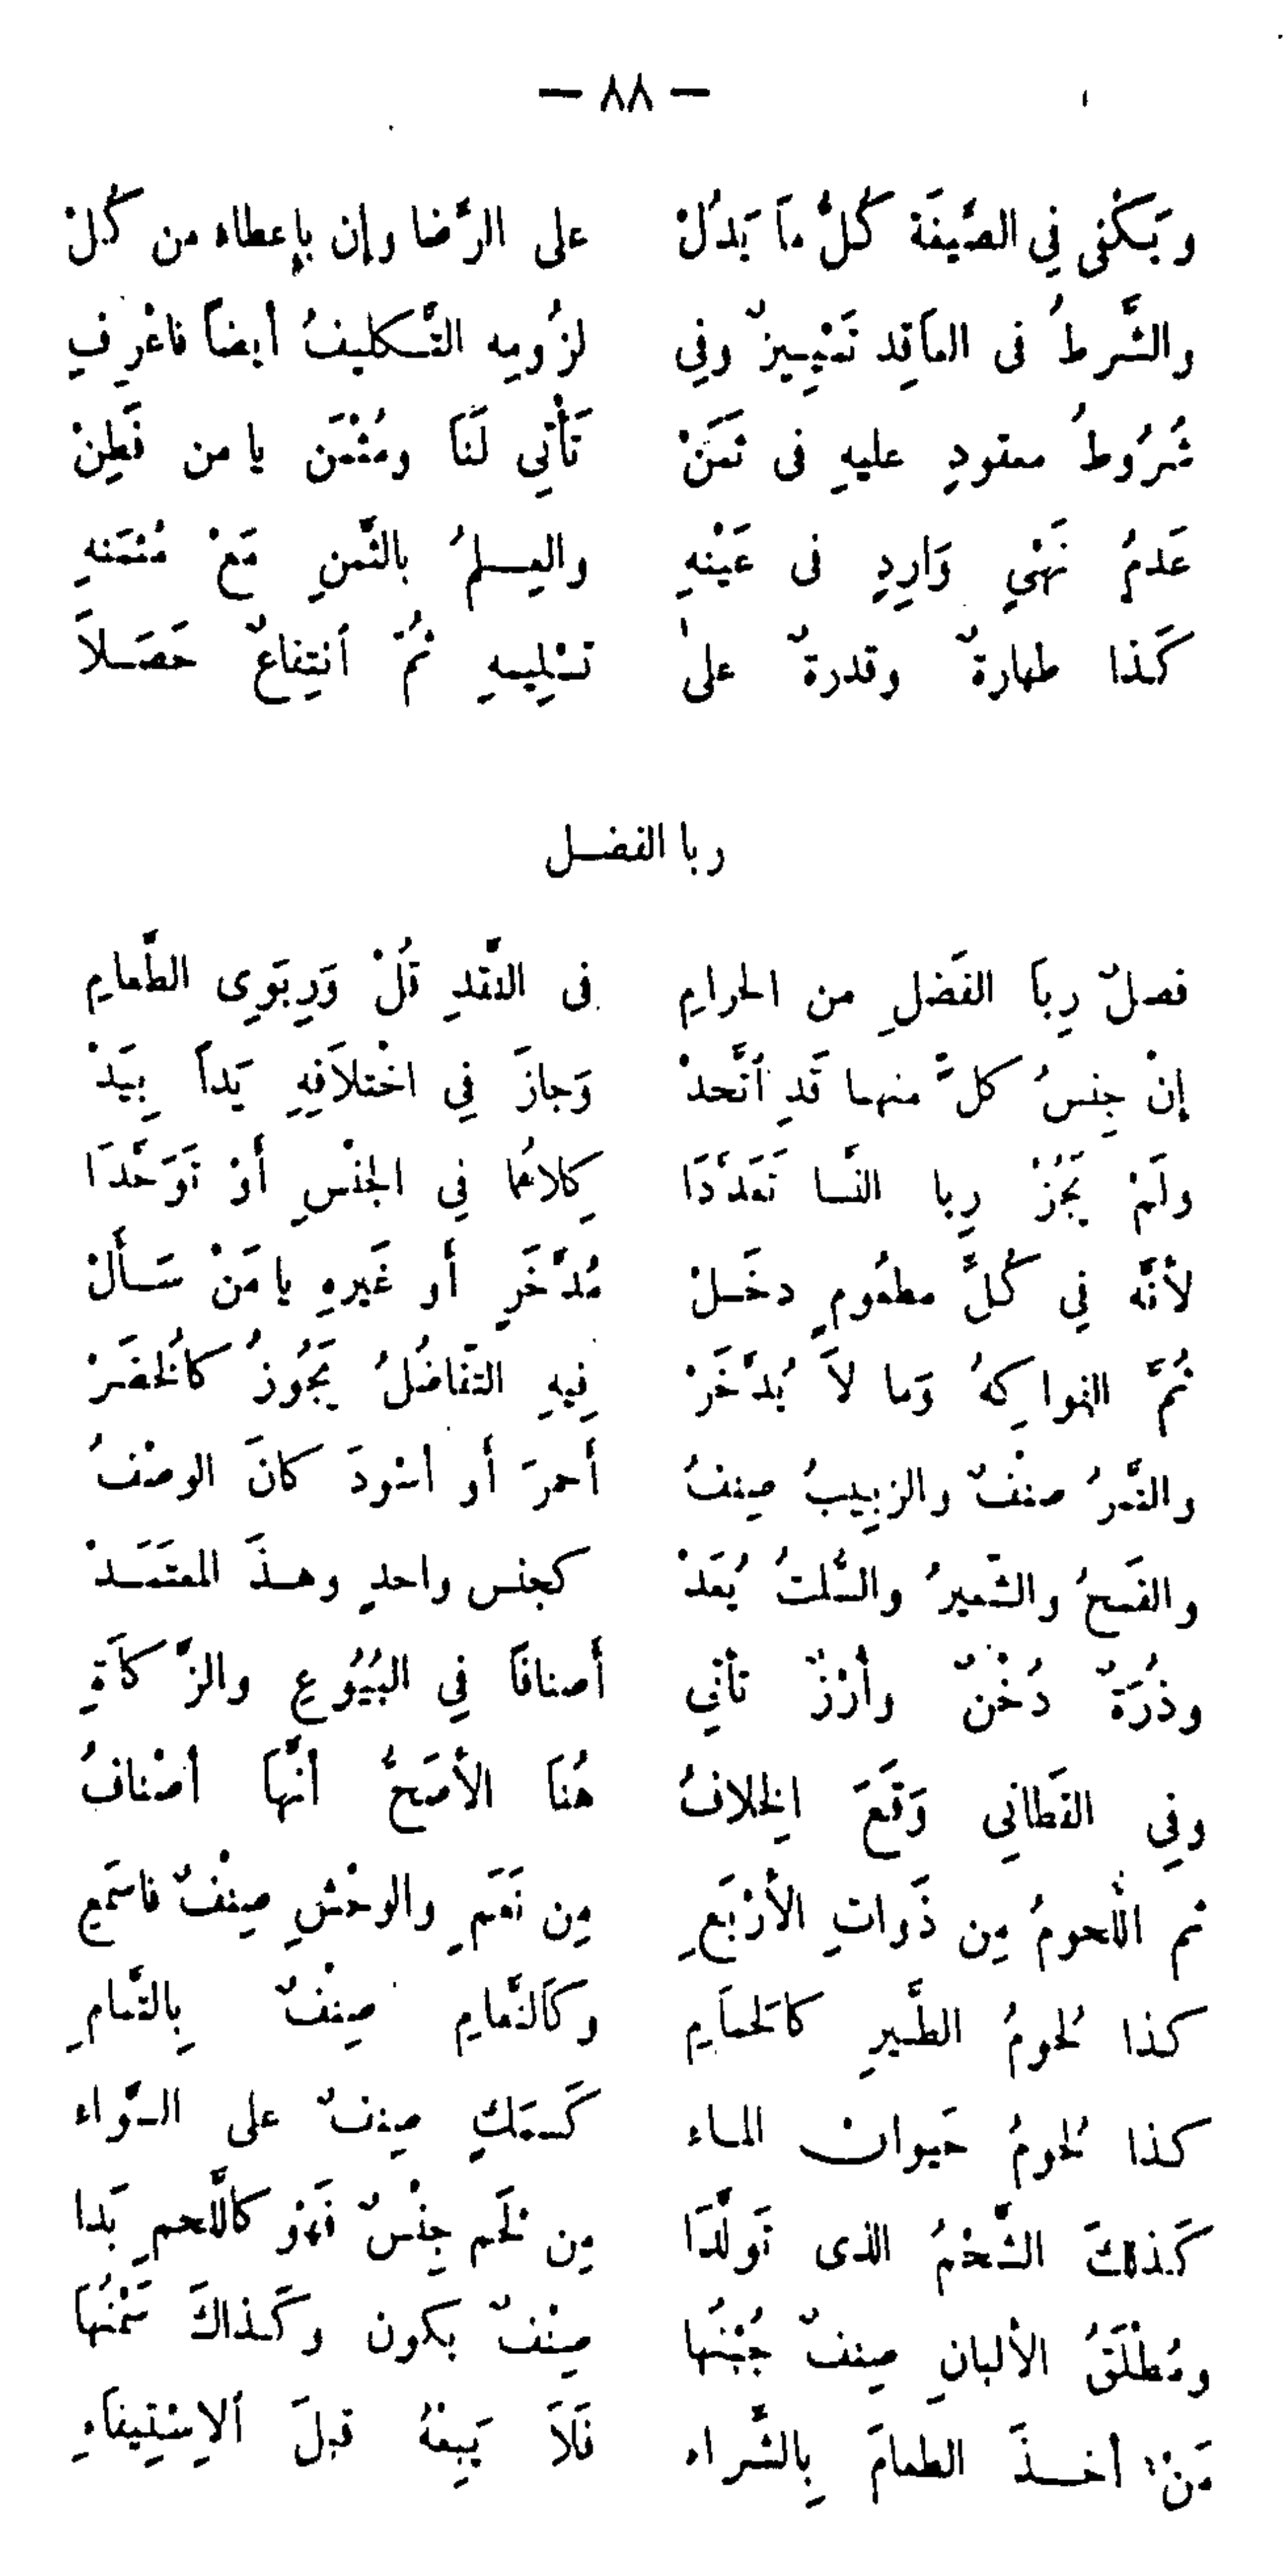 — ٨٨ —
ويَكْفى فِي الصِّيغَة كُلُّ مَا يَدُلْ على الرِّضا وإن بإِعطاء من كُلْ
والشَّرطُ فى العاَقِد تَمْيِيزٌ وفِي لزُومِه التَّكليفُ أيضاً فاعْرِفِ
شُرُوطُ معقودٍ عليهِ فى ثمَنْ تَأْتِي لَنَا ومُثْمَن يا من فَطِنْ
عَدمُ نَهْىٍ وَارِدٍ فى عَيْنهِ والعِلمُ بالثَّمنِ مَعْ مُثمَنهِ
كَذا طهارةٌ وقدرةٌ علىٰ تسْلِيمهِ ثُمّ اُنتِفاعٌ حَصَلاَ
ربا الفضل
فصلٌ رِباَ الفَضلِ من الحرامِ فى النَّقدِ قُلْ وَرِبَوِى الطَّعامِ
إنْ جِنسُ كلٍّ منهما قَدِ اُتَّحدْ وَجازَ فِي اخْتلاَفِهِ يَداً بِيَدْ
ولَمْ يَجُزْ رِبا النَّسا تَعَدَّدَا كِلاهُما فِي الجنْسِ أَوْ تَوَحَّدَا
لأنَّه فِي كُلِّ مطعُومٍ دخَلْ مُدَّخَرٍ أو غَيرهِ يا مَنْ سَأَلْ
ثُمَّ الفواكِهُ وَما لاَ يُدَّخَرْ فِيهِ التّفاضُلُ يَجُوزُ كالخُضَرْ
والتَّمرُ صنْفٌ والزبِيبُ صِنفُ أحمرَ أو أسْودَ كانَ الوصْفُ
والقَمحُ والشّعيرُ والسُّلتُ يُعَدْ كجنس واحدٍ وهذَ المعتَمَدْ
وذُرَةٌ دُخْنٌ وأرْزٌ تأتِي أَصنافًا فِي البُيُوعِ والزَّكاَةِ
وفِي القَطانِى وَقَعَ الخِلافُ هُنَا الأصَحُّ أنَّهاَ أصْنافُ
ثم اللّحومُ مِن ذَواتِ الأرْبَعِ مِن نَعَمٍ والوحْشِ صِنْفٌ فاسمَعِ
كذا لحومُ الطَّيرِ كالحَماَمِ وكَالنَّعامِ صِنْفٌ بِالتَّمامِ
كذا لحُومُ حَيوانِ الماء كَسمَكٍ صِنفٌ على السَّواء
كَذلكَ الشَّحْمُ الذى تَولَّدَا مِن لحَم جِنْسٌ فَهْو كاللَّحمِ بَدا
ومُطْلَقُ الألبانِ صِنفٌ جُبْنُها صِنْفٌ يكون وكَذاكَ سَمْنُهاَ
مَنْ أخذَ الطعامَ بِالشَّراء فَلاَ يَبِعْهُ قبلَ اُلاِسْتِيفاَءِ